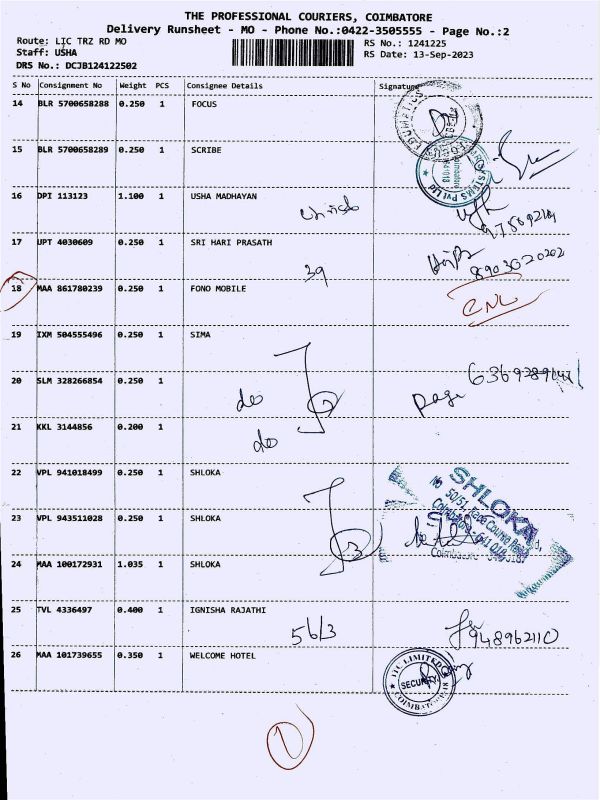 THE PROFESSIONAL COURIERS, COIMBATORE
Delivery Runsheet - MO - Phone No.:0422-3505555 - Page No.:2
Route: LIC TRZ RD MO
RS No.: 1241225
Staff: USHA
RS Date: 13-Sep-2023
DRS No.: DCJB124122502
S No Consignment No Weight PCS Consignee Details Signature
14 BLR 5700658288 0.250 1 FOCUS
15 BLR 5700658289 0.250 1 SCRIBE
16 DPI 113123 1.100 1 USHA MADHAYAN
17 UPT 4030609 0.250 1 SRI HARI PRASATH
39 8903020202
18 MAA 861780239 0.250 1 FONO MOBILE
CNL
19 IXM 504555496 0.250 1 SIMA
20 SLM 328266854 0.250 1
do
21 KKL 3144856 0.200 1
do
22 VPL 941018499 0.250 1 SHLOKA
SHLOKA
23 VPL 943511028 0.250 1 SHLOKA
24 MAA 100172931 1.035 1 SHLOKA
25 TVL 4336497 0.400 1 IGNISHA RAJATHI
56/3 948962110
26 MAA 101739655 0.350 1 WELCOME HOTEL
ITC LIMITED
SECURITY